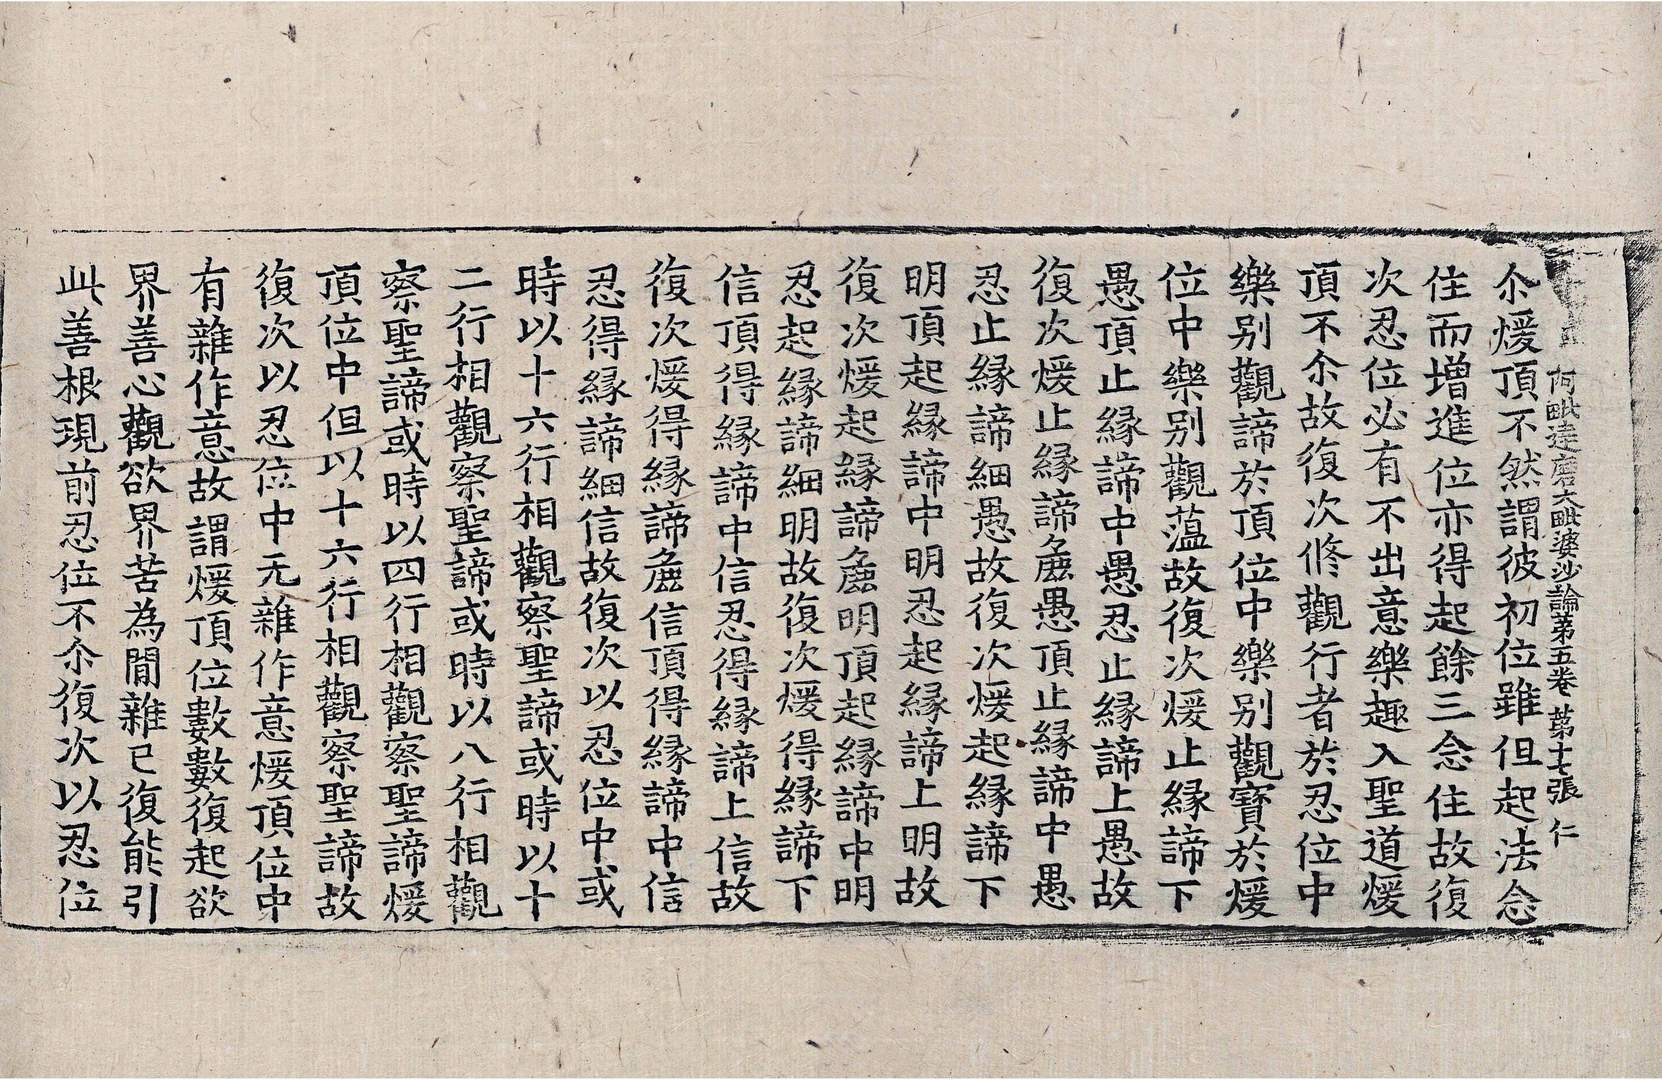 阿毗達磨大毗婆沙論第五卷 第十七張 仁
尒煖頂不然謂彼初位雖但起法念
住而增進位亦得起餘三念住故復
次忍位必有不出意樂趣入聖道煖
頂不尒故復次修觀行者於忍位中
樂別觀諦於頂位中樂別觀寶於煖
位中樂別觀薀故復次煖止緣諦下
愚頂止緣諦中愚忍止緣諦上愚故
復次煖止緣諦麁愚頂止緣諦中愚
忍止緣諦細愚故復次煖起緣諦下
明頂起緣諦中明忍起緣諦上明故
復次煖起緣諦麁明頂起緣諦中明
忍起緣諦細明故復次煖得緣諦下
信頂得緣諦中信忍得緣諦上信故
復次煖得緣諦麁信頂得緣諦中信
忍得緣諦細信故復次以忍位中或
時以十六行相觀察聖諦或時以十
二行相觀察聖諦或時以八行相觀
察聖諦或時以四行相觀察聖諦煖
頂位中但以十六行相觀察聖諦故
復次以忍位中无雜作意煖頂位中
有雜作意故謂煖頂位數數復起欲
界善心觀欲界苦為間雜已復能引
此善根現前忍位不尒復次以忍位